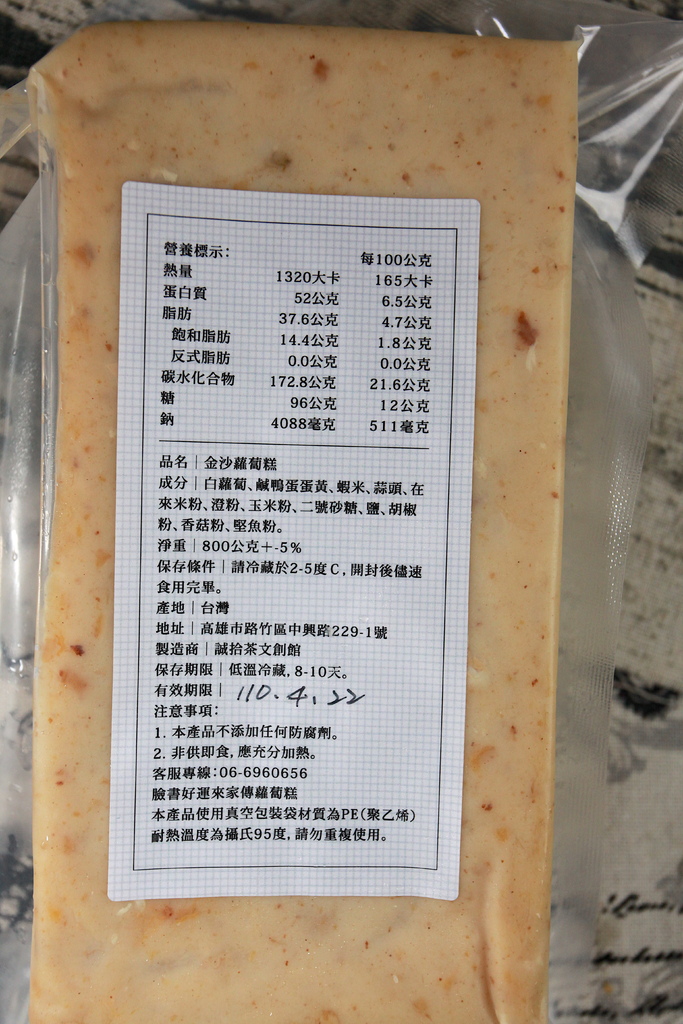 營養標示：
每100公克
熱量 1320大卡 165大卡
蛋白質 52公克 6.5公克
脂肪 37.6公克 4.7公克
飽和脂肪 14.4公克 1.8公克
反式脂肪 0.0公克 0.0公克
碳水化合物 172.8公克 21.6公克
糖 96公克 12公克
鈉 4088毫克 511毫克
品名｜金沙蘿蔔糕
成分｜白蘿蔔、鹹鴨蛋蛋黃、蝦米、蒜頭、在
來米粉、澄粉、玉米粉、二號砂糖、鹽、胡椒
粉、香菇粉、堅魚粉。
淨重｜800公克+-5%
保存條件｜請冷藏於2-5度C，開封後儘速
食用完畢。
產地｜台灣
地址｜高雄市路竹區中興路229-1號
製造商｜誠拾茶文創館
保存期限｜低溫冷藏，8-10天。
有效期限｜110.4.22
注意事項：
1. 本產品不添加任何防腐劑。
2. 非供即食，應充分加熱。
客服專線：06-6960656
臉書好運來家傳蘿蔔糕
本產品使用真空包裝袋材質為PE（聚乙烯）
耐熱溫度為攝氏95度，請勿重複使用。